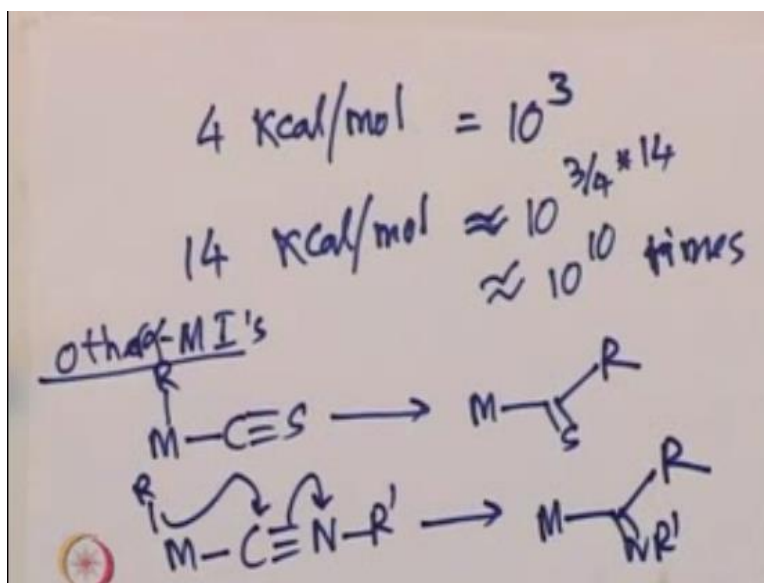 4 Kcal/mol = 10³
14 Kcal/mol ≈ 10^3/4*14
≈ 10^10 times
Other MI's
R
M-C≡S → M R
S
R
M-C≡N-R' → M R
NR'